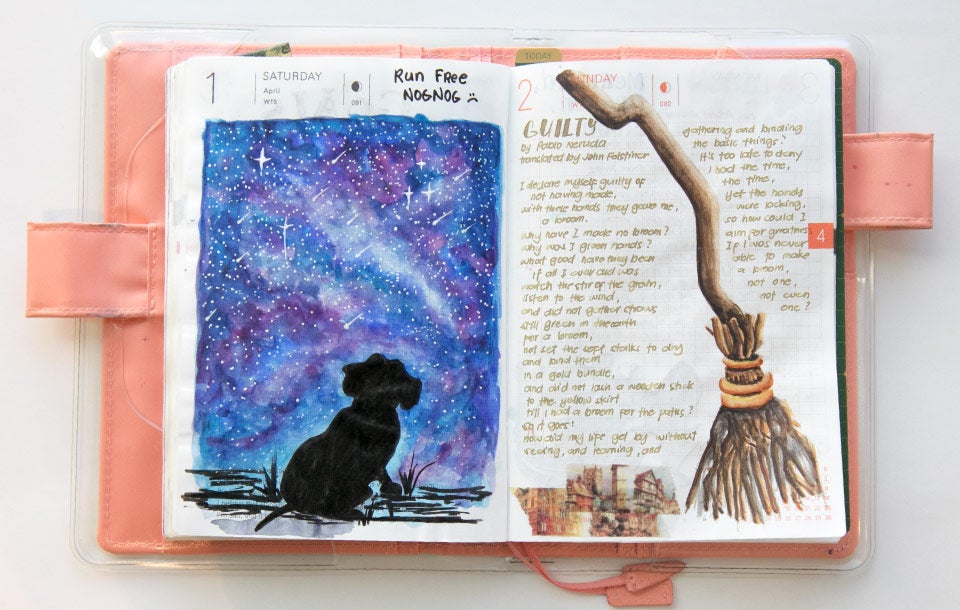 1
SATURDAY
April
W13
091
Run Free
NOGNOG
TODAY
2
NDAY
092
GUILTY
by Pablo Neruda
translated by John Felstiner
I declare myself guilty of
not having made,
with these hands they gave me,
a broom.
Why have I made no broom?
Why was I given hands?
What good have they been
if all I ever did was
watch the stir of the grain,
listen to the wind,
and did not gather straws
still green in the earth
for a broom,
not set the soft stalks to dry
and bind them
in a gold bundle,
and did not join a wooden stick
to the yellow skirt
till I had a broom for the paths?
So it goes!
how did my life get by without
seeing, and learning, and
gathering and binding
the basic things?
It's too late to deny
I had the time,
the time,
yet the hands
were lacking,
so how could I
aim for greatness
If I was never
able to make
a broom,
not one,
not even
one?
4